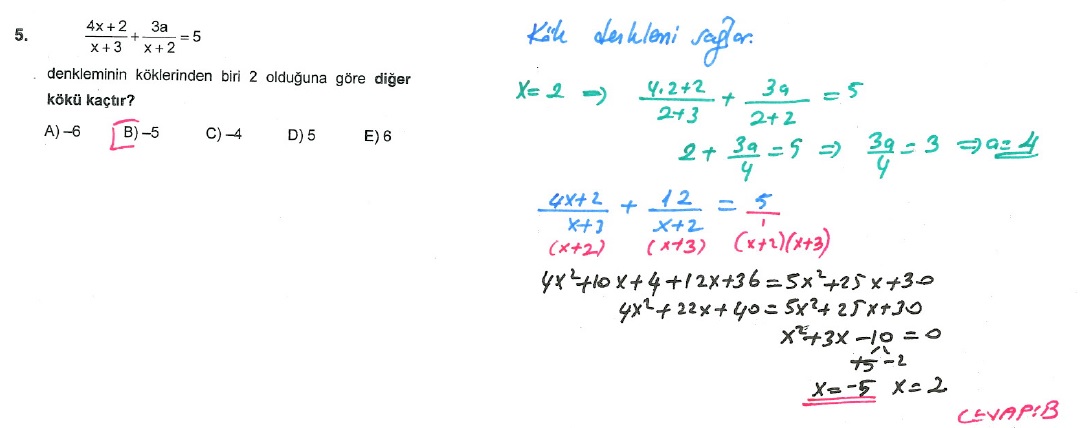 5. (4x + 2)/(x + 3) + 3a/(x + 2) = 5
denkleminin köklerinden biri 2 olduğuna göre diğer
kökü kaçtır?
A) –6 B) –5 C) –4 D) 5 E) 6
Kök denklemi sağlar.
x = 2 ⇒ (4.2+2)/(2+3) + 3a/(2+2) = 5
2 + 3a/4 = 5 ⇒ 3a/4 = 3 ⇒ a = 4
(4x+2)/(x+3) + 12/(x+2) = 5/1
(x+2) (x+3) (x+2)(x+3)
4x²+10x+4+12x+36=5x²+25x+30
4x²+22x+40=5x²+25x+30
x²+3x-10=0
+5 -2
x=-5 x=2
CEVAP:B